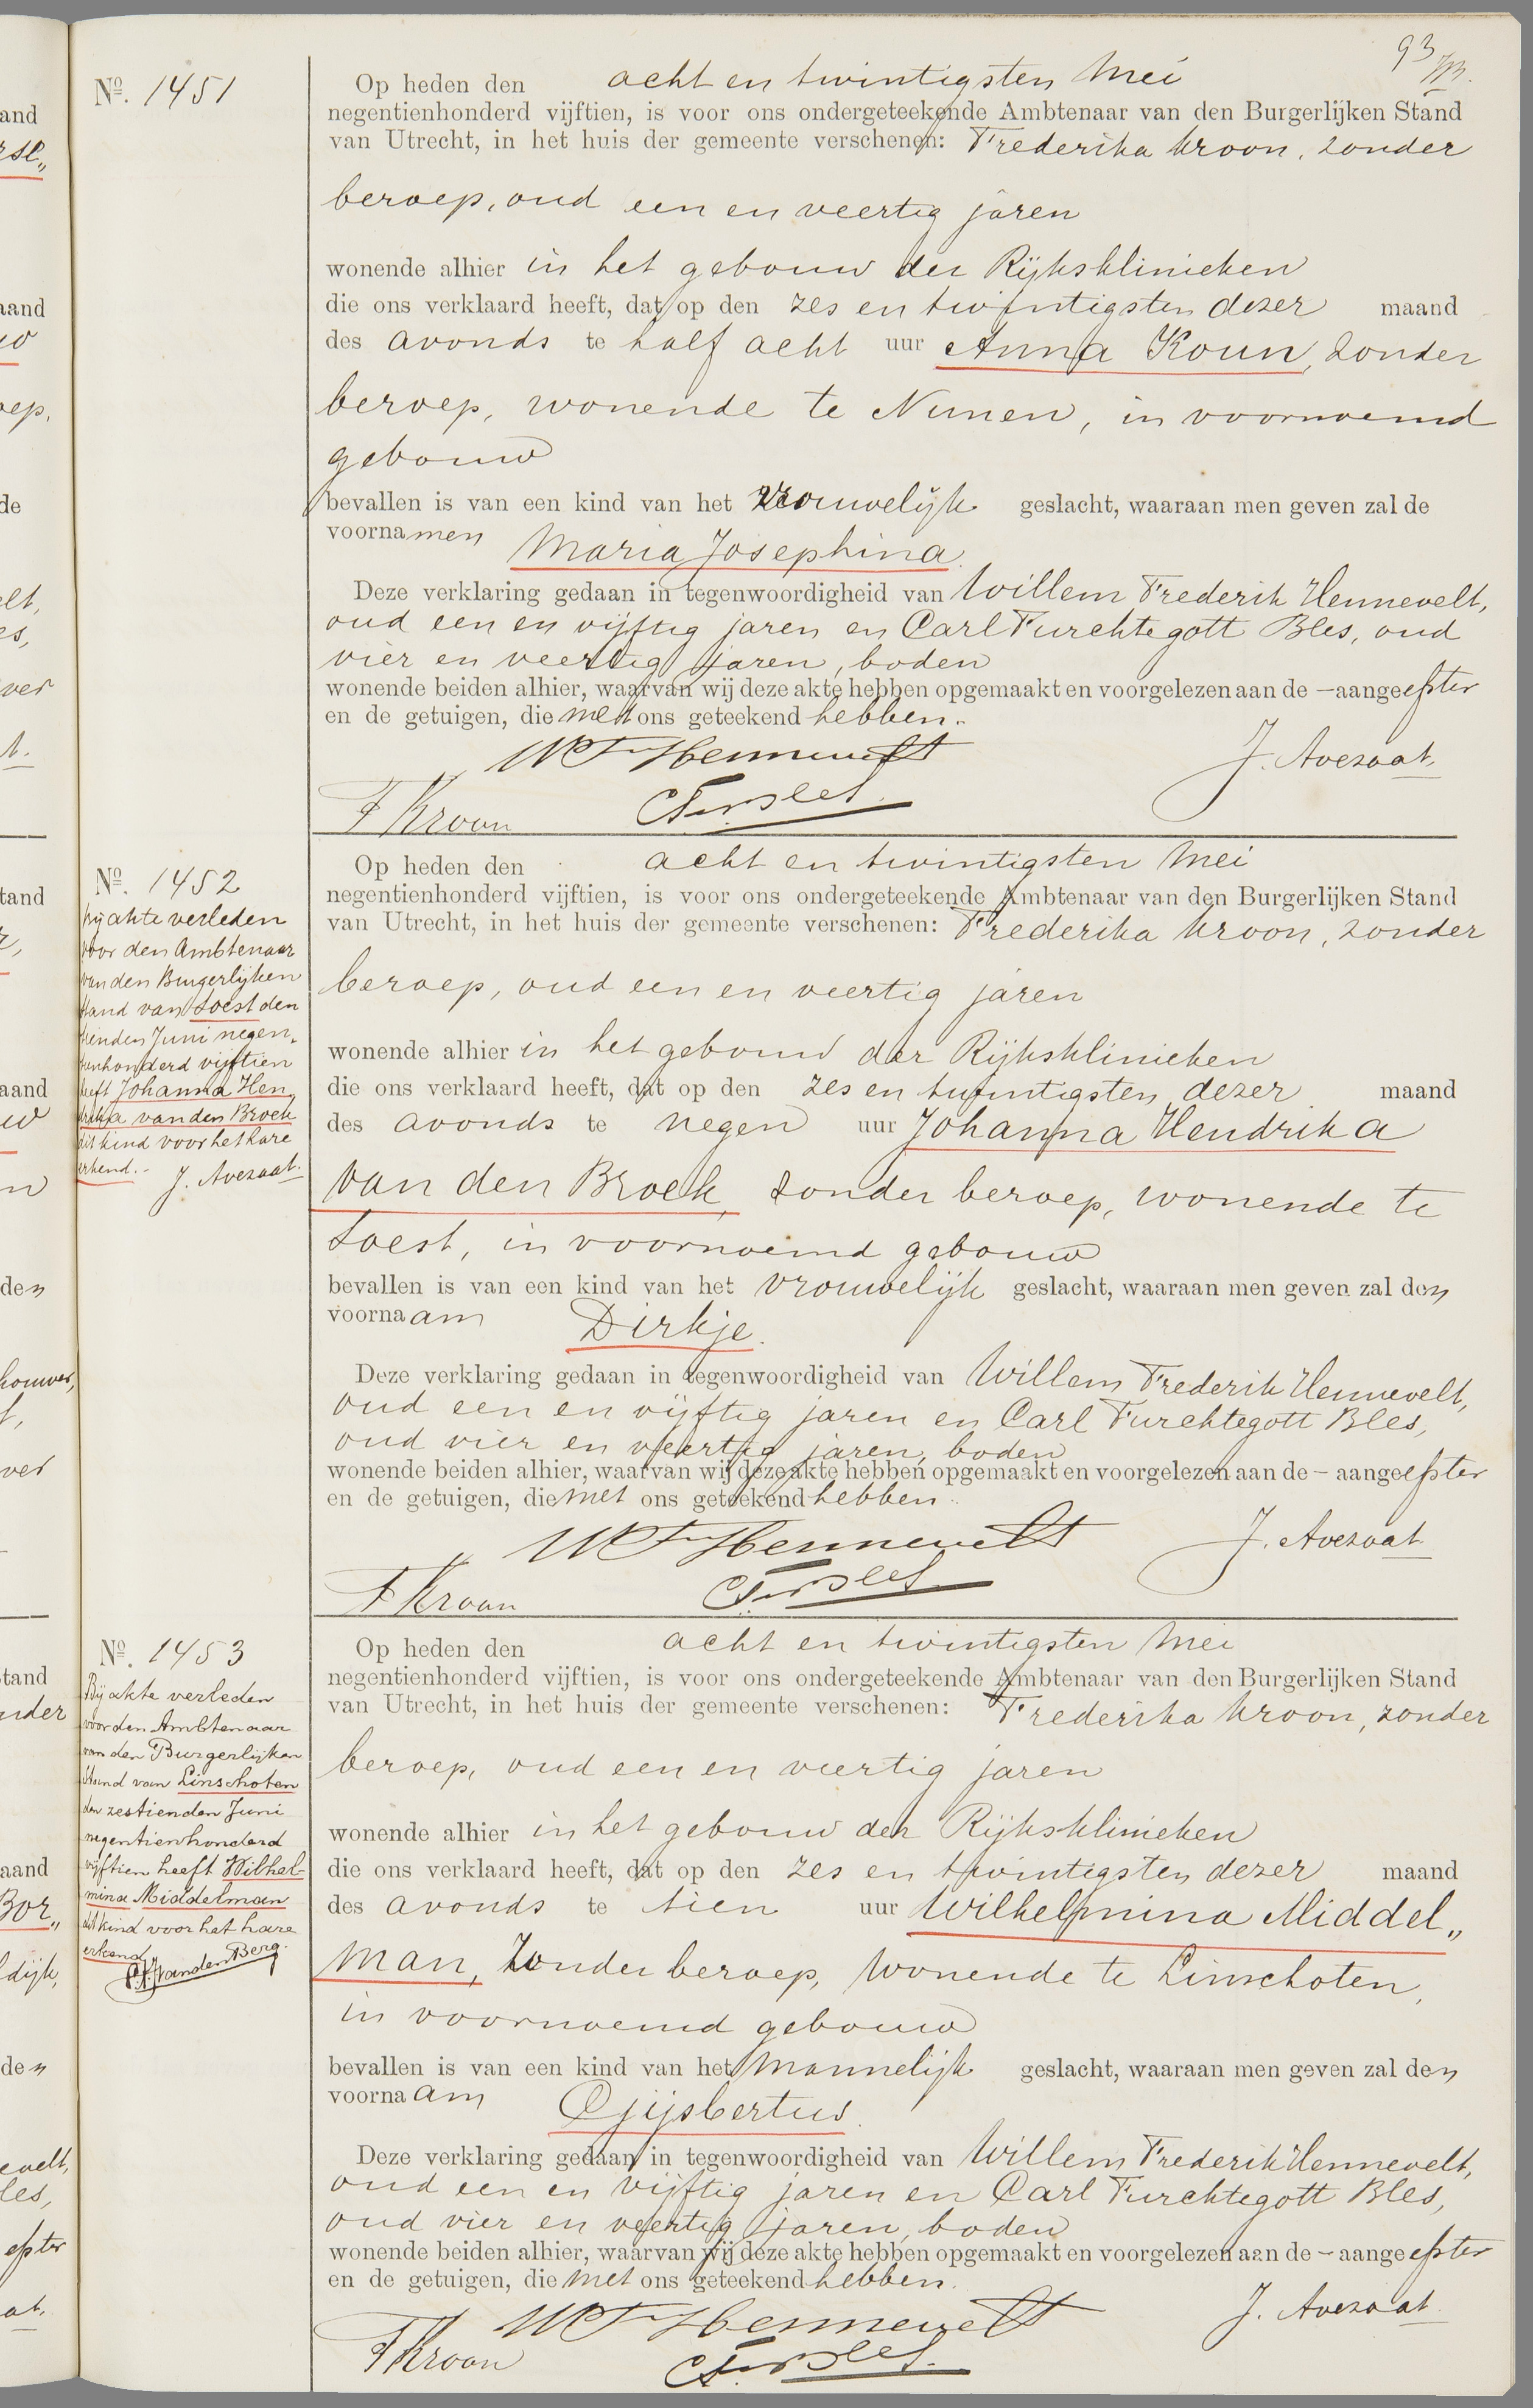 93
No. 1451
Op heden den acht en twintigsten Mei
negentienhonderd vijftien, is voor ons ondergeteekende Ambtenaar van den Burgerlijken Stand
van Utrecht, in het huis der gemeente verschenen: Frederika Kroon, zonder
beroep, oud een en veertig jaren
wonende alhier in het gebouw der Rijksklinieken
die ons verklaard heeft, dat op den zes en twintigsten dezer maand
des avonds te half acht uur Anna Koun, zonder
beroep, wonende te Nunen, in voornoemd
gebouw
bevallen is van een kind van het vrouwelijk geslacht, waaraan men geven zal de
voornamen Maria Josephina.
Deze verklaring gedaan in tegenwoordigheid van Willem Frederik Hennevelt,
oud een en vijftig jaren en Carl Furchtegott Bles, oud
vier en veertig jaren, boden
wonende beiden alhier, waarvan wij deze akte hebben opgemaakt en voorgelezen aan de – aangeefster
en de getuigen, die met ons geteekend hebben.
WF Hennevelt J. Avezaat.
F Kroon CF Bles.
No. 1452
bij akte verleden
voor den Ambtenaar
van den Burgerlijken
Stand van Soest den
tienden Juni negen-
tienhonderd vijftien
heeft Johanna Hen-
drika van den Broek
dit kind voor het hare
erkend.-
J. Avezaat.
Op heden den acht en twintigsten Mei
negentienhonderd vijftien, is voor ons ondergeteekende Ambtenaar van den Burgerlijken Stand
van Utrecht, in het huis der gemeente verschenen: Frederika Kroon, zonder
beroep, oud een en veertig jaren
wonende alhier in het gebouw der Rijksklinieken
die ons verklaard heeft, dat op den zes en twintigsten dezer maand
des avonds te negen uur Johanna Hendrika
van den Broek, zonder beroep, wonende te
Soest, in voornoemd gebouw
bevallen is van een kind van het vrouwelijk geslacht, waaraan men geven zal den
voornaam Dirkje.
Deze verklaring gedaan in tegenwoordigheid van Willem Frederik Hennevelt,
oud een en vijftig jaren en Carl Furchtegott Bles,
oud vier en veertig jaren, boden
wonende beiden alhier, waarvan wij deze akte hebben opgemaakt en voorgelezen aan de – aangeefster
en de getuigen, die met ons geteekend hebben.
WF Hennevelt J. Avezaat
F Kroon CF Bles
No. 1453
Bij akte verleden
voor den Ambtenaar
van den Burgerlijken
Stand van Linschoten
den zestienden Juni
negentienhonderd
vijftien heeft Wilhel-
mina Middelman
dit kind voor het hare
erkend.
van den Berg.
Op heden den acht en twintigsten Mei
negentienhonderd vijftien, is voor ons ondergeteekende Ambtenaar van den Burgerlijken Stand
van Utrecht, in het huis der gemeente verschenen: Frederika Kroon, zonder
beroep, oud een en veertig jaren
wonende alhier in het gebouw der Rijksklinieken
die ons verklaard heeft, dat op den zes en twintigsten dezer maand
des avonds te tien uur Wilhelmina Middel„
man, zonder beroep, wonende te Linschoten,
in voornoemd gebouw
bevallen is van een kind van het mannelijk geslacht, waaraan men geven zal den
voornaam Gijsbertus.
Deze verklaring gedaan in tegenwoordigheid van Willem Frederik Hennevelt,
oud een en vijftig jaren en Carl Furchtegott Bles,
oud vier en veertig jaren, boden
wonende beiden alhier, waarvan wij deze akte hebben opgemaakt en voorgelezen aan de – aangeefster
en de getuigen, die met ons geteekend hebben.
WF Hennevelt J. Avezaat
F Kroon CF Bles.